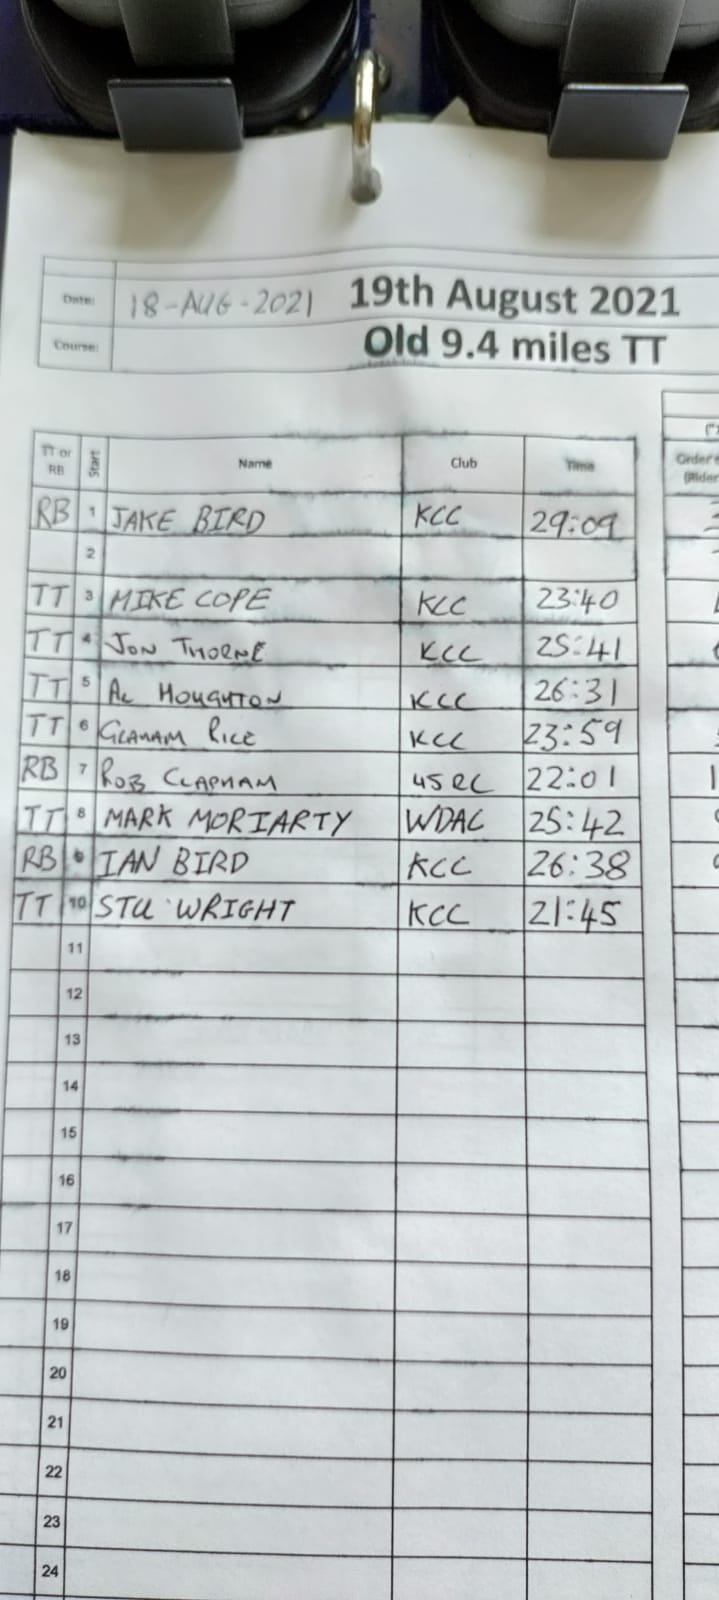 Date: 18-AUG-2021 19th August 2021
Course: Old 9.4 miles TT
TT or RB Start Name Club Time
RB 1 JAKE BIRD KCC 29:09
2
TT 3 MIKE COPE KCC 23:40
TT 4 JON THORNE KCC 25:41
TT 5 AL HOUGHTON KCC 26:31
TT 6 GRAHAM RICE KCC 23:59
RB 7 ROB CLAPHAM 45RC 22:01
TT 8 MARK MORIARTY WDAC 25:42
RB 9 IAN BIRD KCC 26:38
TT 10 STU WRIGHT KCC 21:45
11
12
13
14
15
16
17
18
19
20
21
22
23
24